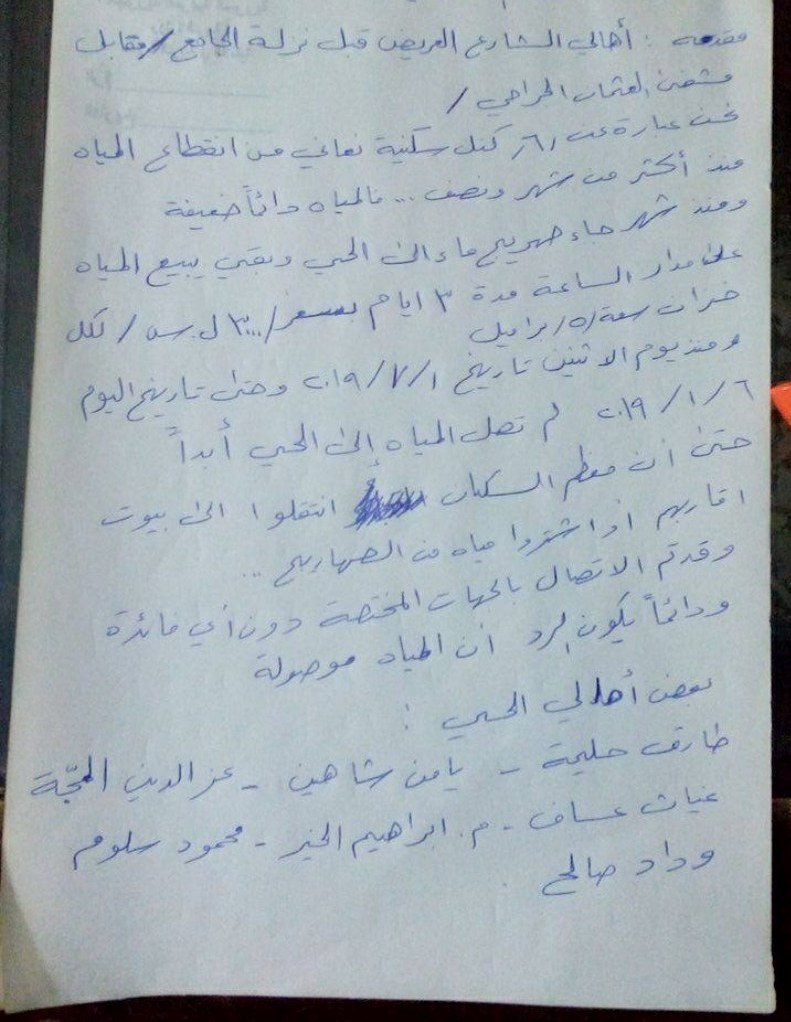 مقدمه : أهالي الشارع العريض قبل نزلة الجامع / مقابل
مشفى العثمان الجراحي /
نحن عبارة عن /٦/ كتل سكنية نعاني من انقطاع المياه
منذ أكثر من شهر ونصف ... فالمياه دائماً ضعيفة
ومنذ شهر جاء صهريج ماء الى الحي وبقي يبيع المياه
على مدار الساعة مدة ٣ ايام بسعر /٣٠٠٠ ل.س/ لكل
خزان سعة /٥/ براميل
ومنذ يوم الاثنين تاريخ ٢٠١٩/٧/١ وحتى تاريخ اليوم
٢٠١٩/١/٦ لم تصل المياه إلى الحي أبداً
حتى ان معظم السكان انتقلوا الى بيوت
اقاربهم او اشتروا مياه من الصهاريج ...
وقد تم الاتصال بالجهات المختصة دون أي فائدة
ودائماً يكون الرد أن المياه موصولة
بعض أهالي الحي :
طارق حليمة - يامن شاهين - عز الدين المجّة
غياث عساف - م. ابراهيم الخير - محمود سلوم
وداد صالح